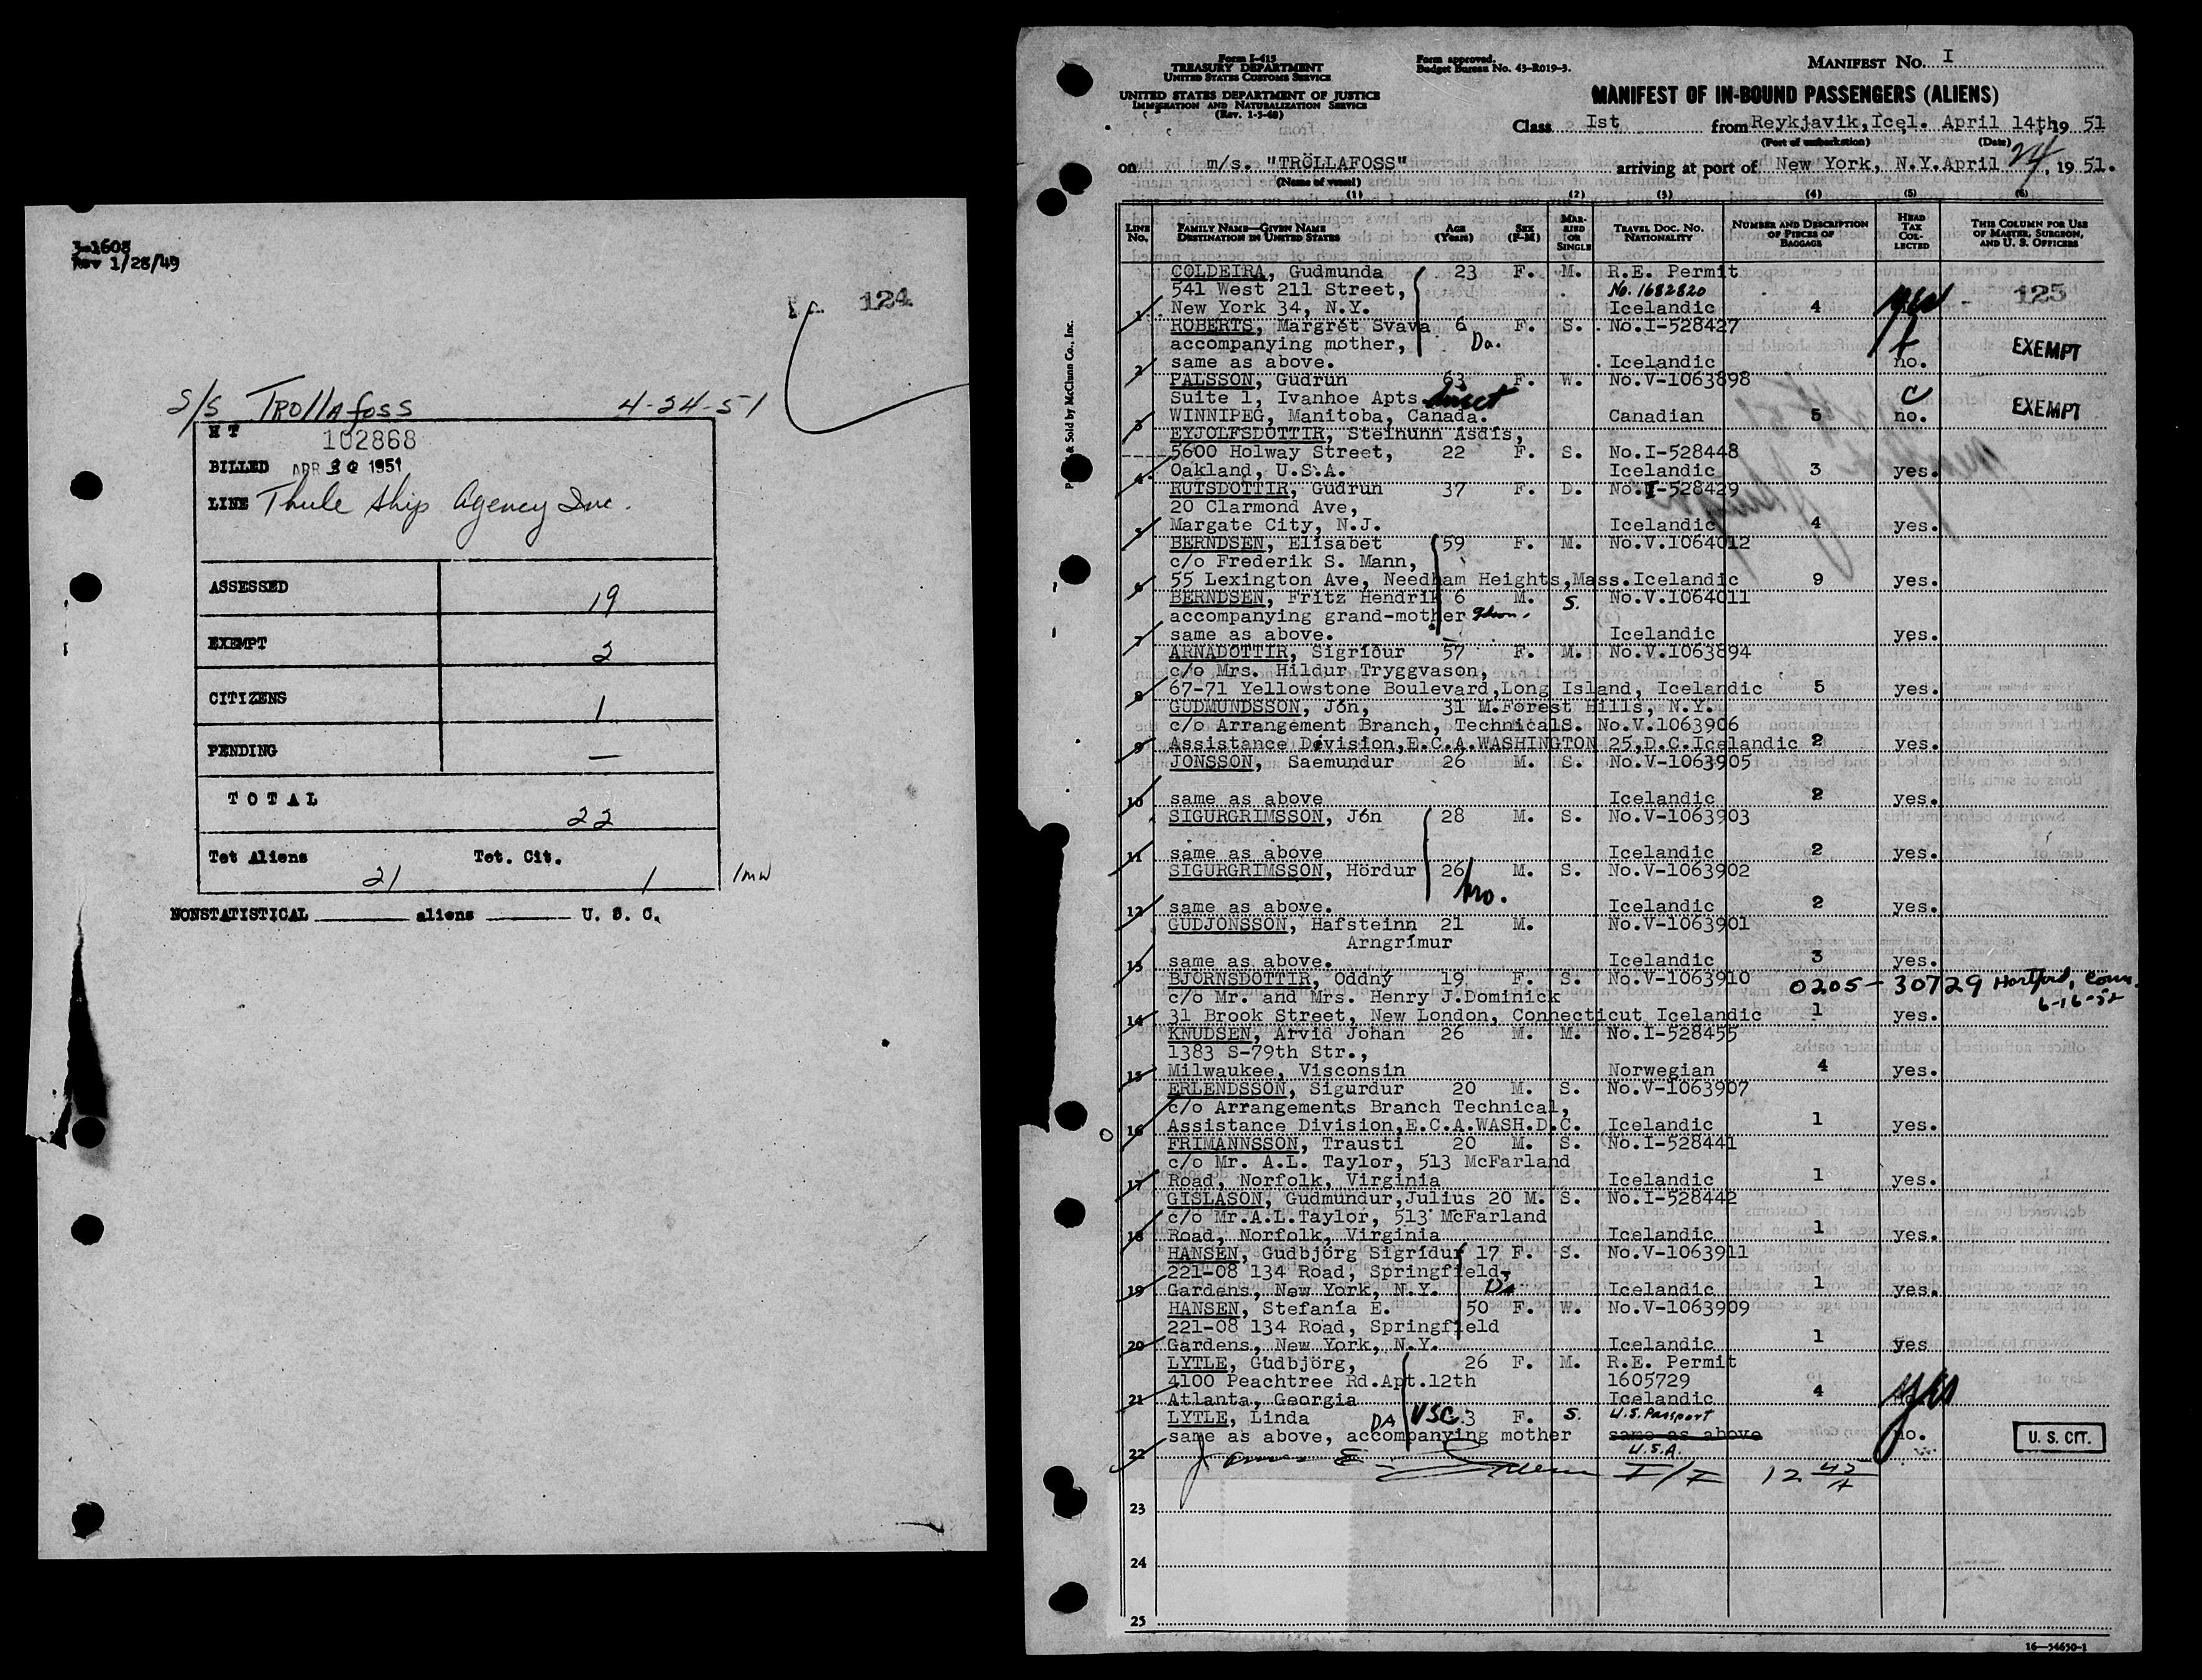 3-1608
Rev 1/28/49
124
S/S Trollafoss 4-24-51
H T 102868
BILLED APR 30 1951
LINE Thule Ship Agency Inc.
ASSESSED 19
EXEMPT 2
CITIZENS 1
PENDING —
TOTAL 22
Tot Aliens Tot. Cit.
21 1 1mw
NONSTATISTICAL aliens U. S. C.
Form I-415
TREASURY DEPARTMENT
UNITED STATES CUSTOMS SERVICE
UNITED STATES DEPARTMENT OF JUSTICE
IMMIGRATION AND NATURALIZATION SERVICE
(Rev. 1-3-48)
Form approved.
Budget Bureau No. 43-R019-3.
MANIFEST No. I
MANIFEST OF IN-BOUND PASSENGERS (ALIENS)
Class Ist from Reykjavik, Icel. April 14th, 19 51
(Port of embarkation) (Date)
on m/s. "TRÖLLAFOSS" arriving at port of New York, N.Y. April 24, 19 51.
(Name of vessel)
(1) (2) (3) (4) (5) (6)
LINE No. FAMILY NAME—GIVEN NAME DESTINATION IN UNITED STATES AGE (Years) SEX (F-M) MARRIED OR SINGLE TRAVEL DOC. NO. NATIONALITY NUMBER AND DESCRIPTION OF PIECES OF BAGGAGE HEAD TAX COLLECTED THIS COLUMN FOR USE OF MASTER, SURGEON, AND U. S. OFFICERS
COLDEIRA, Gudmunda 23 F. M. R.E. Permit
541 West 211 Street, No. 1682820
1 New York 34, N.Y. Icelandic 4 yes 125
ROBERTS, Margrét Svava 6 F. S. No.I-528427
accompanying mother, Da. EXEMPT
2 same as above. Icelandic no.
PALSSON, Gudrun 63 F. W. No.V-1063898
Suite 1, Ivanhoe Apts C
3 WINNIPEG, Manitoba, Canada. Canadian 5 no. EXEMPT
EYJOLFSDOTTIR, Steinunn Asdis,
5600 Holway Street, 22 F. S. No.I-528448
4 Oakland, U.S.A. Icelandic 3 yes.
RUTSDOTTIR, Gudrun 37 F. D. No.I-528429
20 Clarmond Ave,
5 Margate City, N.J. Icelandic 4 yes.
BERNDSEN, Elisabet 59 F. M. No.V.1064012
c/o Frederik S. Mann,
6 55 Lexington Ave, Needham Heights, Mass. Icelandic 9 yes.
BERNDSEN, Fritz Hendrik 6 M. S. No.V.1064011
accompanying grand-mother
7 same as above. Icelandic yes.
ARNADOTTIR, Sigríður 57 F. M. No.V.1063894
c/o Mrs. Hildur Tryggvason,
8 67-71 Yellowstone Boulevard, Long Island, Icelandic 5 yes.
GUDMUNDSSON, Jón, 31 M. Forest Hills, N.Y.
c/o Arrangement Branch, Technical S. No.V.1063906
9 Assistance Division, E.C.A. WASHINGTON 25, D.C. Icelandic 2 yes.
JONSSON, Saemundur 26 M. S. No.V-1063905
10 same as above Icelandic 2 yes.
SIGURGRIMSSON, Jón 28 M. S. No.V-1063903
11 same as above Icelandic 2 yes.
SIGURGRIMSSON, Hördur 26 M. S. No.V-1063902
bro.
12 same as above. Icelandic 2 yes.
GUDJONSSON, Hafsteinn 21 M. No.V-1063901
Arngrímur
13 same as above. Icelandic 3 yes.
BJORNSDOTTIR, Oddný 19 F. S. No.V-1063910 0205-30729 Hartford, Conn.
c/o Mr. and Mrs. Henry J.Dominick 6-16-52
14 31 Brook Street, New London, Connecticut Icelandic 1 yes.
KNUDSEN, Arvid Johan 26 M. M. No.I-528455
1383 S-79th Str.,
15 Milwaukee, Visconsin Norwegian 4 yes.
ERLENDSSON, Sigurdur 20 M. S. No.V-1063907
c/o Arrangements Branch Technical,
16 Assistance Division, E.C.A. WASH.D.C. Icelandic 1 yes.
FRIMANNSSON, Trausti 20 M. S. No.I-528441
c/o Mr. A.L. Taylor, 513 McFarland
17 Road, Norfolk, Virginia Icelandic 1 yes.
GISLASON, Gudmundur, Julius 20 M. S. No.I-528442
c/o Mr.A.L.Taylor, 513 McFarland
18 Road, Norfolk, Virginia Icelandic 1 yes.
HANSEN, Gudbjörg Sigrídur 17 F. S. No.V-1063911
221-08 134 Road, Springfield,
19 Gardens, New York, N.Y. Da Icelandic 1 yes.
HANSEN, Stefanía E. 50 F. W. No.V-1063909
221-08 134 Road, Springfield
20 Gardens, New York, N.Y. Icelandic 1 yes
LYTLE, Gudbjörg, 26 F. M. R.E. Permit
4100 Peachtree Rd.Apt.12th 1605729
21 Atlanta, Georgia Icelandic 4 yes
LYTLE, Linda DA USC 3 F. S. U.S. Passport
same as above, accompanying mother same as above no. U. S. CIT.
22 U.S.A.
I/I 12 45/A
23
24
25
16—54650-1